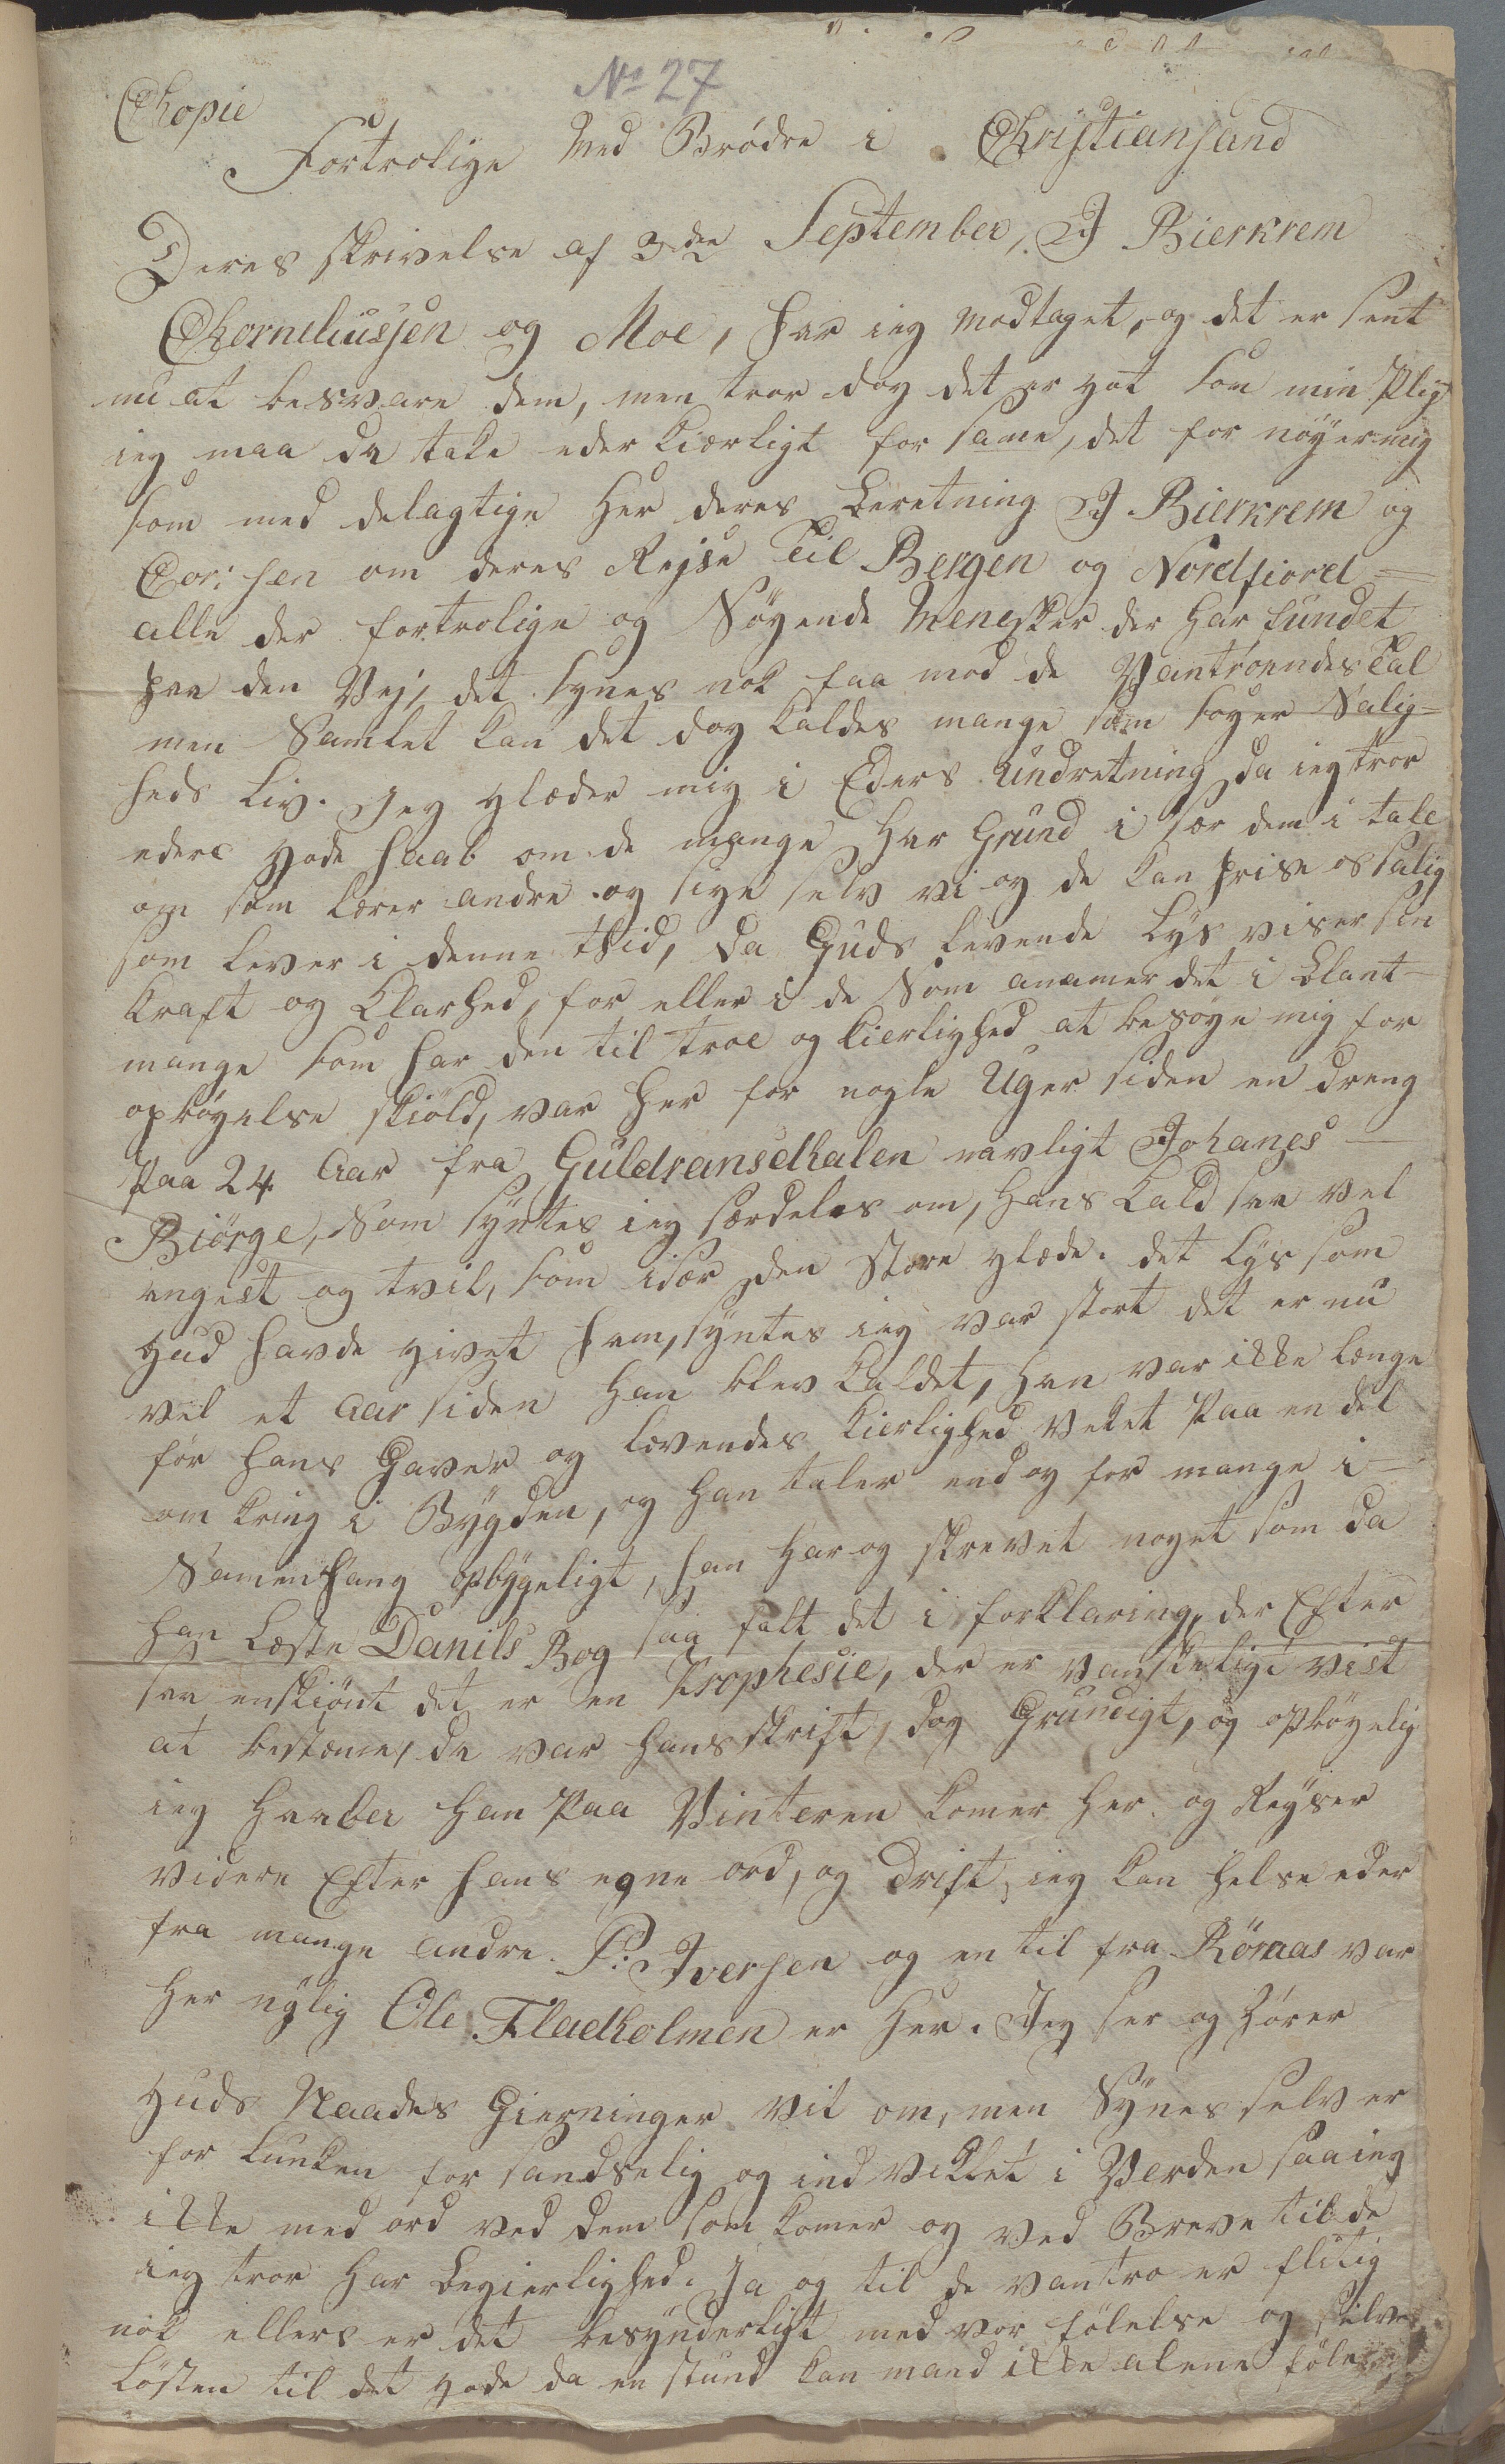 No 27
Chopie
Fortrolige Med Brødre i Christiansand
Deres skrivelse af 3die September, J Bierkrem
Chorneliussen og Moe, har ieg modtaget, og det er sent
nu at besvare dem, men tror dog det er got som min Pligt
ieg maa da take eder kierligt for same, det for nøyer mig
som med delagtige Her deres Beretning J Bierkrem og
Cor: sen om deres Rejse Til Bergen og Nordfiord =
alle der fortrolige og Søgende Menesker der har fundet
paa den Vej, det synes nok faa mod de Vantroendes Tal
men Samlet kan det dog kaldes mange som søger Salig=
heds Liv. Jeg glæder mig i Eders Undretning da ieg tror
eders gode haab om de mange Har Grund i sær dem i tale
om som lærer andre og sige selv vi og de kan prise os salig
som lever i denne Tid, da Guds levende Lys viser sin
kraft og Klarhed, for eller i de Som anamer det i blant
mange som har den til troe og kierlighed at besøge mig for
opbøgelse skiöld, var her for nogle Uger siden en dreng
Paa 24 Aar fra Guldransdhalen navligt Johanes
Biörge, Som syntes ieg særdeles om, Hans Kald saa vel
angest og tvil, som især den Store glæde. det Lys som
Gud havde givet ham, syntes ieg var stort det er nu
vel et Aar siden Han blev Kaldet, Han var ikke længe
før Hans Gaver og levendes Kierlighed Vekte Paa en del
om kring i Bygden, og Han taler end og for mange i
Samenhang opbygeligt, han Har og skrevet noget som da
han Læste Danils Bog saa falt det i forklaring, der Efter
saa enskiönt det er en Prophesie, der er vanskeligt vist
at bestæme, da var Hans skrift, dog Grundigt, og opbøgelig
ieg Haaber Han Paa Vinteren komer Her og Reyser
videre Efter Hans egne ord, og Drift, ieg kan helse eder
fra mange andre. P: Iversen og en til fra Röraas var
Her nylig Ole Fladholmen er Her. Jeg ser og hører
Guds Naades Gierninger vit om, men Synes selv er
for lunken for sandselig og ind viklet i Verden saa ieg
ikke med ord ved dem som komer og ved Breve til de
ieg tror Har Begierlighed. Ja og til de vantro er flitig
nok ellers er det besynderligt med vor følelse og selve
Lösten til det gode da en stund kan mand ikke alene føle